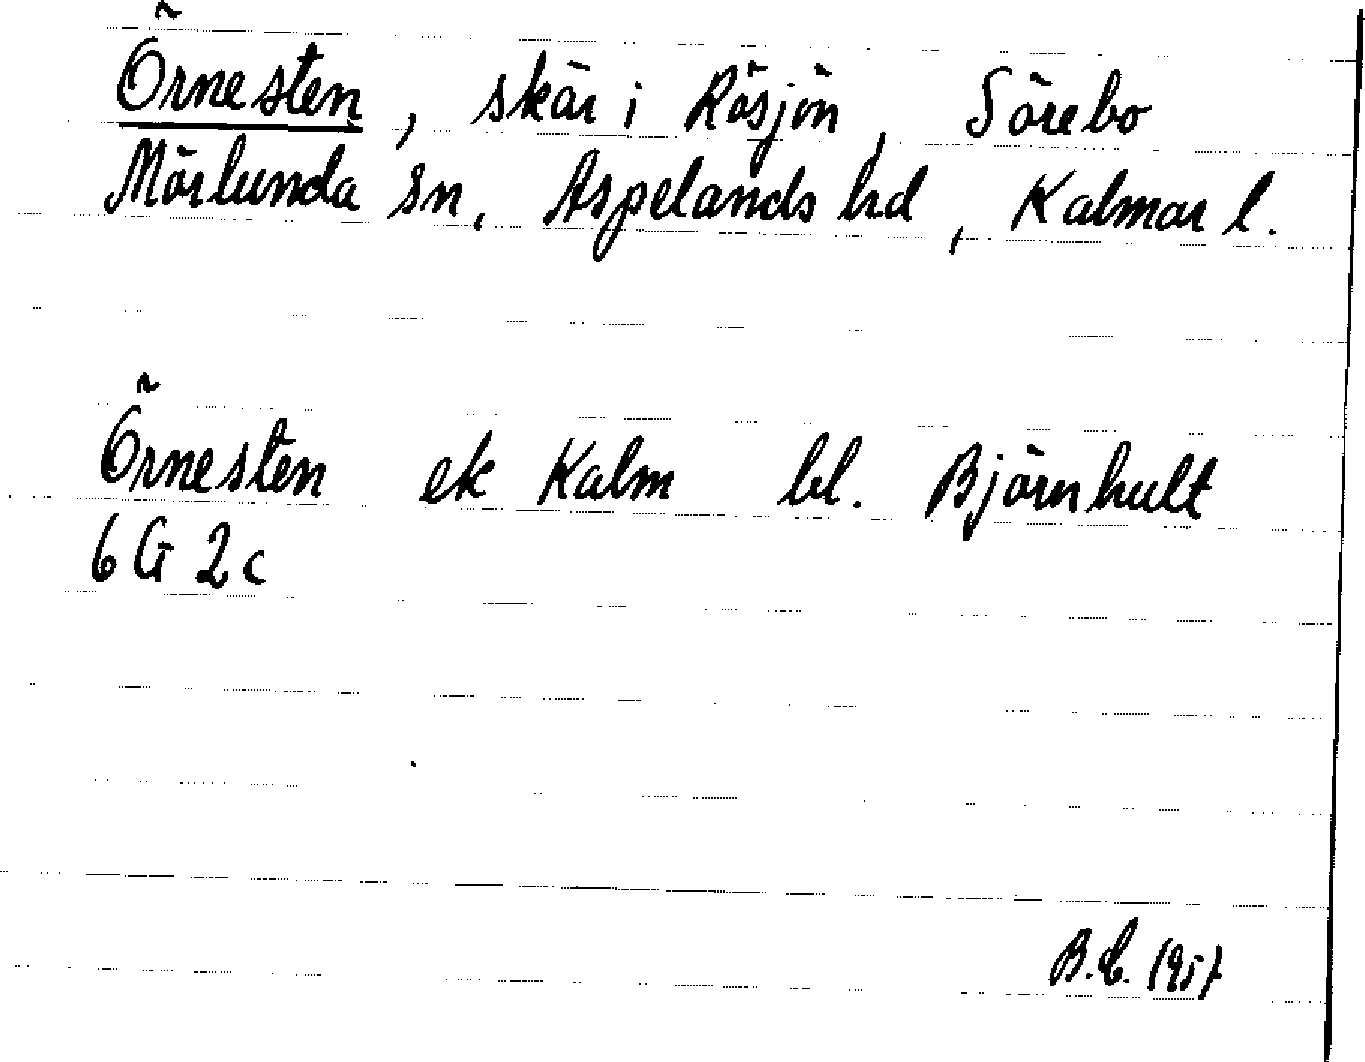 Örnesten, skär i Rösjön, Sörebo
Mörlunda sn, Aspelands hd, Kalmar l.
Örnesten ek Kalm bl. Björnhult
6 G 2c
B.E. 1957